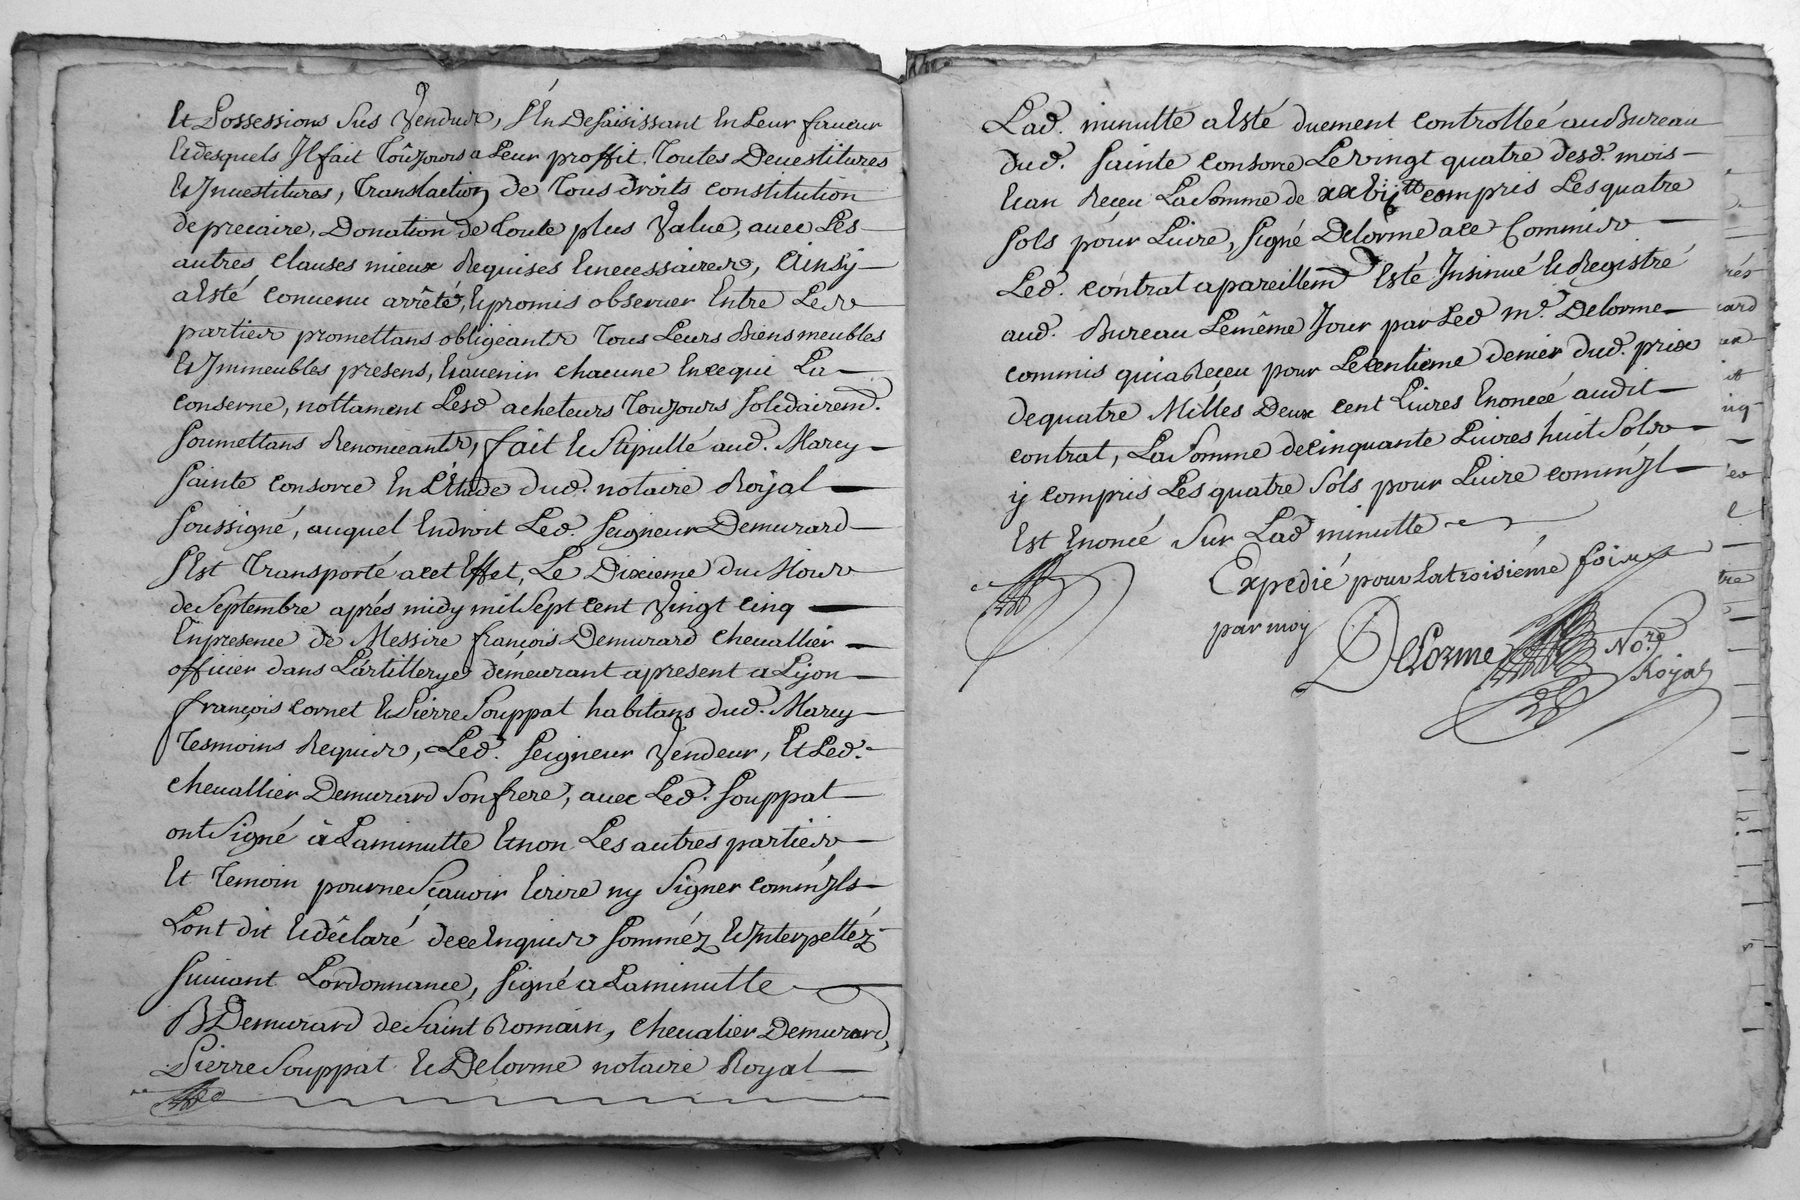 Et Possessions Sus Vendus, S'En Desaisissant En Leur faveur
Et desquels Il fait Toûjours a Leur proffit. Toutes Devestitures
Et Investitures, Translaction de Tous droits constitution
de precaire, Donation de toute plus Value, avec Les
autres clauses mieux Requises Et necessaires, Ainsy
a Esté convenu arrêté, Et promis observer Entre Les
parties promettans obligeants Tous Leurs Biens meubles
Et Immeubles presens, Et avenir chacune En ce qui La
conserne, nottament Lesd acheteurs Toujours Solidairemt.
Soumettans Renonceants, fait Et Stipullé aud. Marcy
Sainte Consorce En L'Etude dud. notaire Roÿal
Soussigné, auquel Endroit Led. Seigneur Demurard
S'Est Transporté a cet Effet, Le Dixieme du Mois
de Septembre aprés midy mil Sept cent Vingt cinq
En presence de Messire françois Demurard chevallier
officier dans L'artillerye demeurant a present a Lyon
françois Cornet Et Pierre Souppat habitans dud. Marcy
Tesmoins Requis, Led. Seigneur Vendeur, Et Led.
chevallier Demurard Son frere, avec Led. Souppat
ont Signé à La minutte Et non Les autres parties
Et Temoin pour ne Scavoir Ecrire ny Signer comm'Ils
L'ont dit Et déclaré de ce Enquis Somméz Et Interpelléz
Suivant L'ordonnance, Signé a La minutte
B Demurard de Saint Romain, chevalier Demurard,
Pierre Souppat Et Delorme notaire Royal
Lad. minutte a Esté duement controllée au Bureau
dud. Sainte Consorce Le vingt quatre desd. mois
Et an Reçeu La Somme de xxbij tt compris Les quatre
Sols pour Livre, Signé Delorme a ce Commis
Led. contrat a pareillemt Esté Insinué Et Registré
aud. Bureau Le même Jour par Led mr. Delorme
commis qui a Reçeu pour Le Centieme denier dud. prix
de quatre Milles Deux cent Livres Enoncé audit
contrat, La Somme de cinquante Livres huit Sols
ij compris Les quatre Sols pour Livre comm'Il
Est Enoncé Sur Lad minutte
Expedié pour La troisiéme fois
par moy
Delorme Nore.
Royal